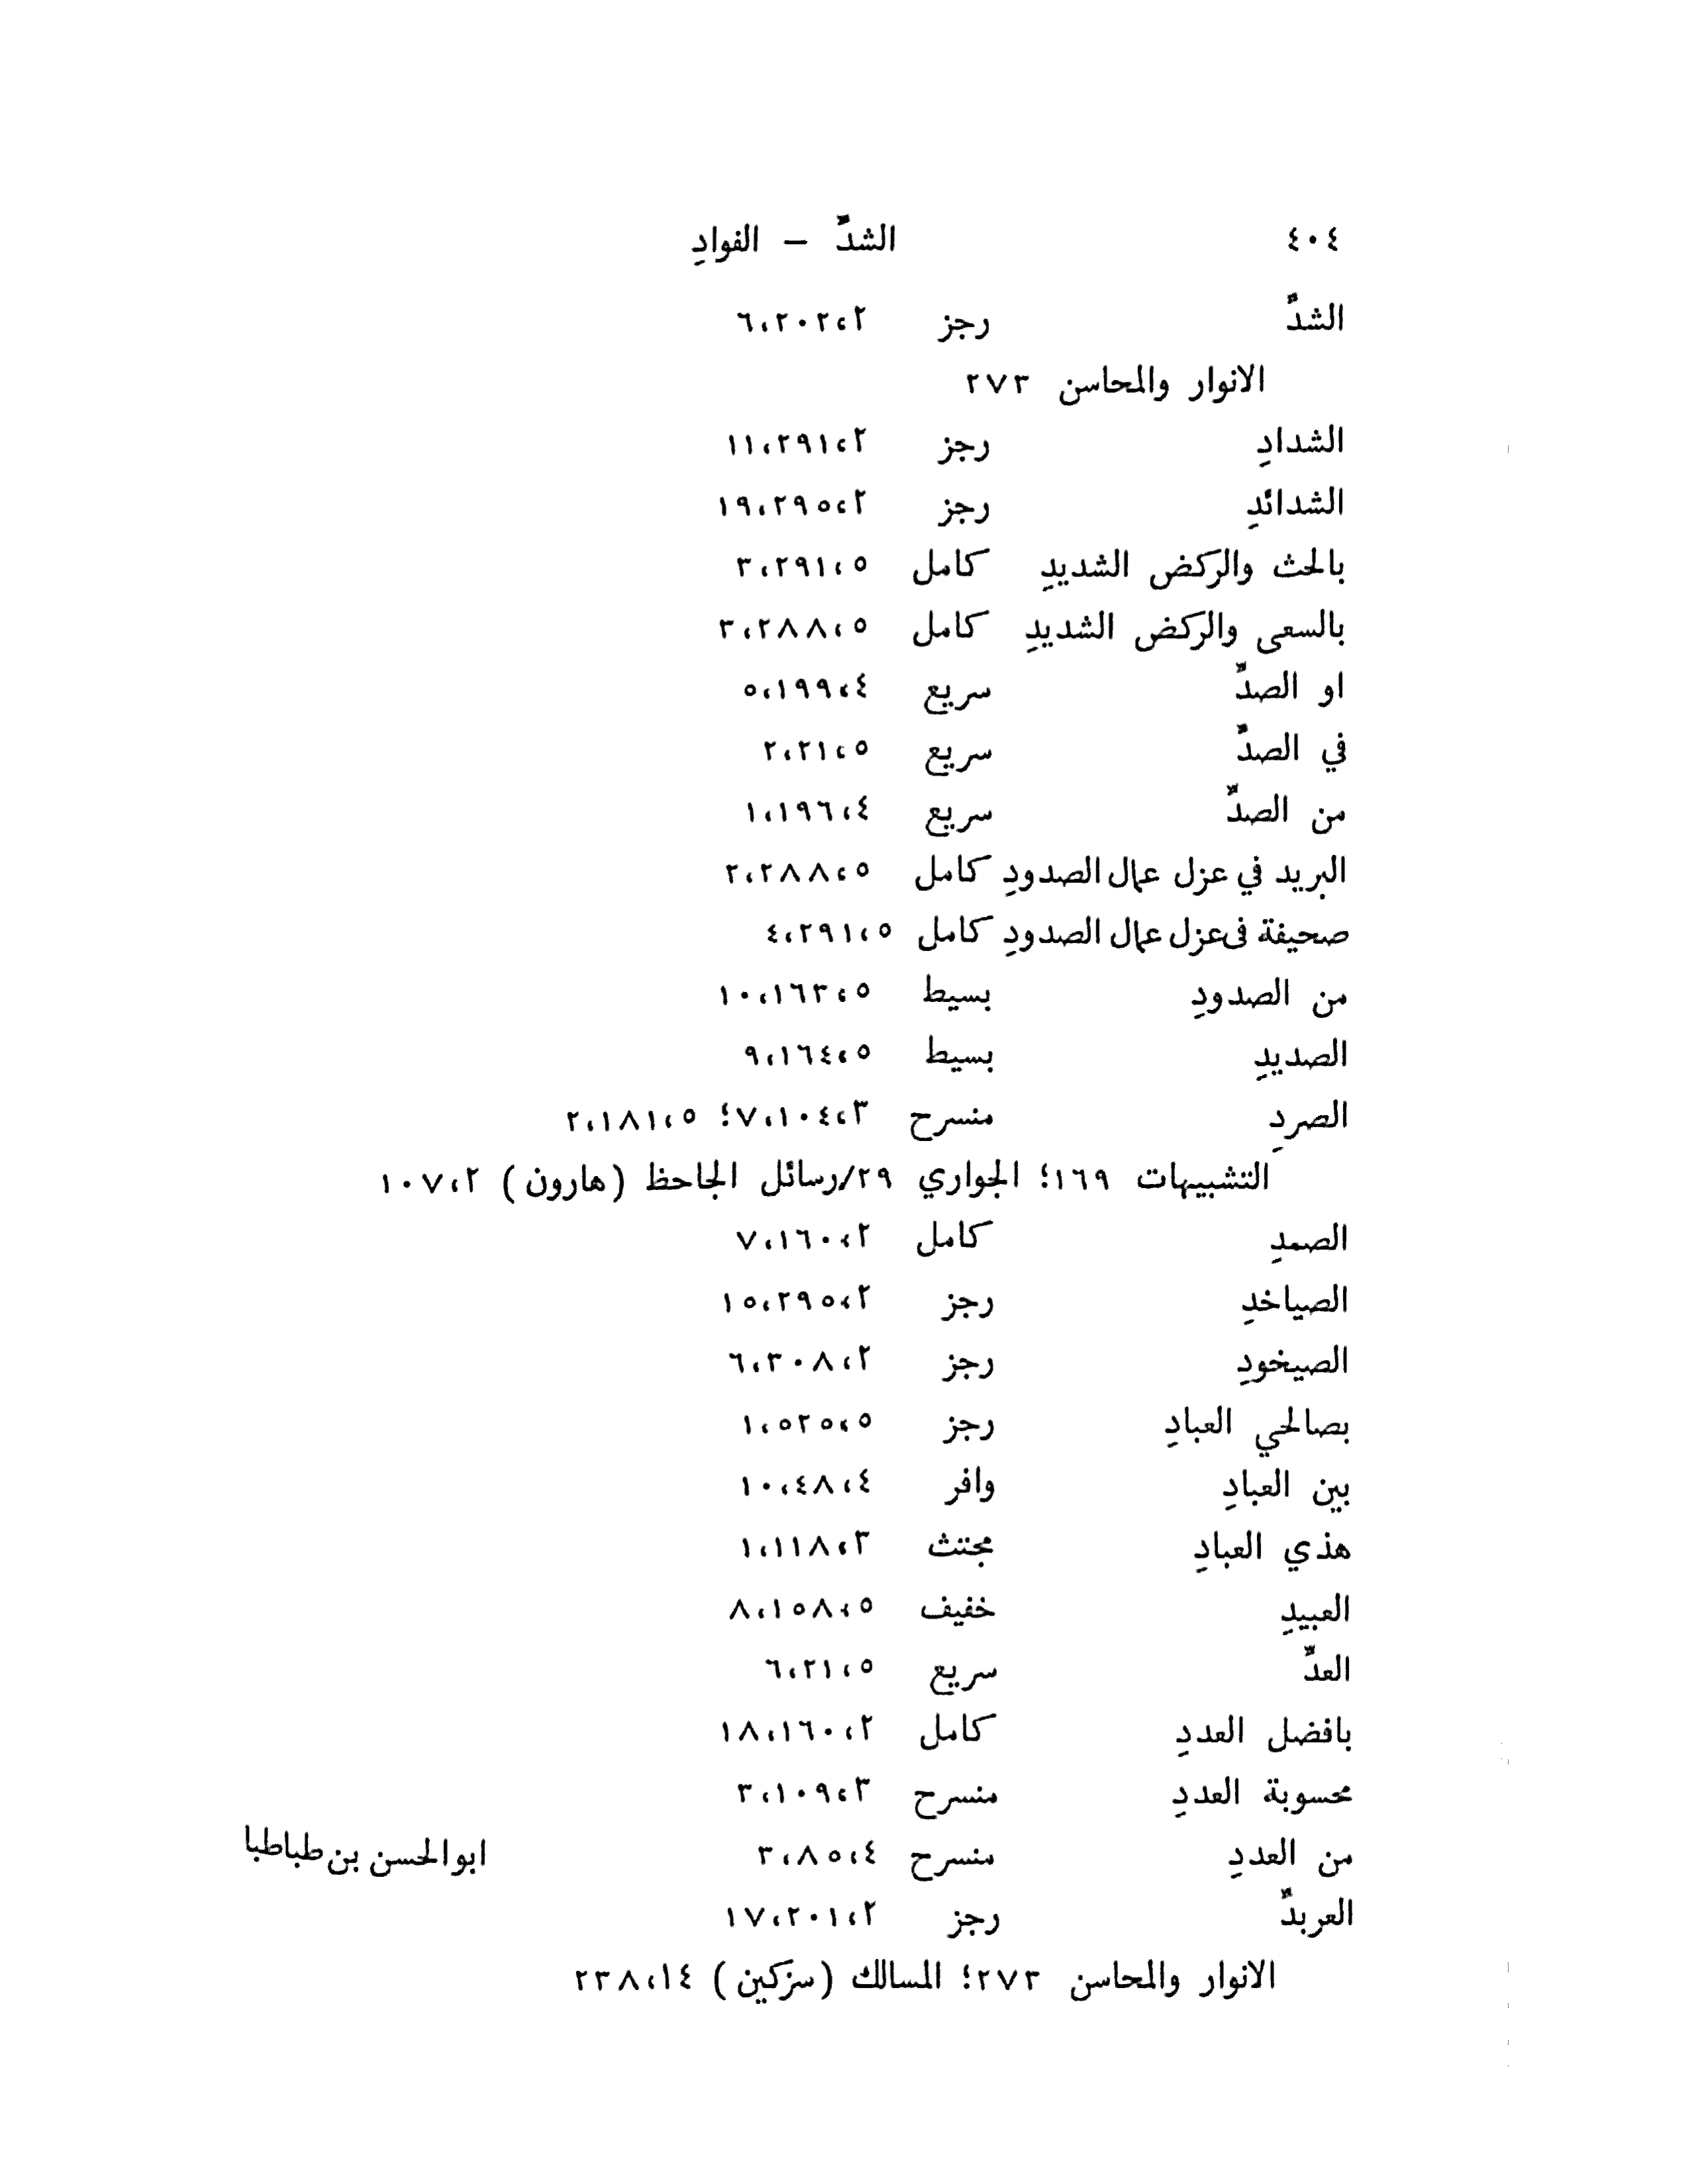 ٤٠٤ الشدِّ – الفوادِ
الشدِّ رجز ٢،٢٠٢،٦
الانوار والمحاسن ٢٧٣
الشدادِ رجز ٢،٢٩١،١١
الشدائدِ رجز ٢،٢٩٥،١٩
بالحث والركض الشديدِ كامل ٥،٢٩١،٣
بالسعى والركض الشديدِ كامل ٥،٢٨٨،٣
او الصدِّ سريع ٤،١٩٩،٥
في الصدِّ سريع ٥،٢١،٢
من الصدِّ سريع ٤،١٩٦،١
البريد في عزل عمال الصدودِ كامل ٥،٢٨٨،٢
صحيفة فى عزل عمال الصدودِ كامل ٥،٢٩١،٤
من الصدودِ بسيط ٥،١٦٣،١٠
الصديدِ بسيط ٥،١٦٤،٩
الصردِ منسرح ٣،١٠٤،٧؛ ٥،١٨١،٢
التشبيهات ١٦٩؛ الجواري ٢٩/رسائل الجاحظ (هارون) ٢،١٠٧
الصمدِ كامل ٢،١٦٠،٧
الصياخدِ رجز ٢،٢٩٥،١٥
الصيخودِ رجز ٢،٣٠٨،٦
بصالحي العبادِ رجز ٥،٥٢٥،١
بين العبادِ وافر ٤،٤٨،١٠
هذي العبادِ مجتث ٣،١١٨،١
العبيدِ خفيف ٥،١٥٨،٨
العدِّ سريع ٥،٢١،٦
بافضل العددِ كامل ٢،١٦٠،١٨
محسوبة العددِ منسرح ٣،١٠٩،٣
من العددِ منسرح ٤،٨٥،٣ ابوالحسن بن طباطبا
العربدِّ رجز ٢،٢٠١،١٧
الانوار والمحاسن ٢٧٣؛ المسالك (سزكين) ١٤،٢٣٨